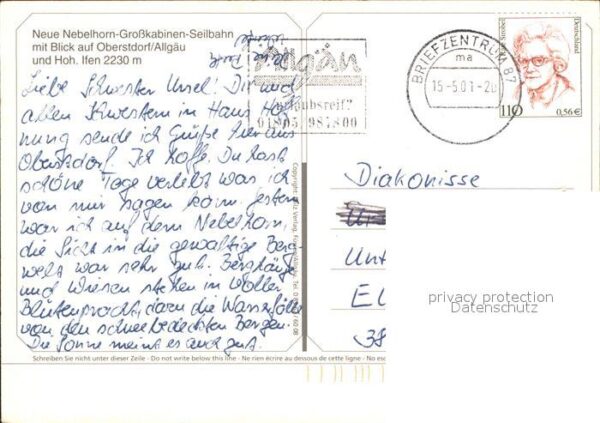 Neue Nebelhorn-Großkabinen-Seilbahn
mit Blick auf Oberstdorf/Allgäu
und Hoh. Ifen 2230 m
Allgäu
Urlaubsreif?
BRIEFZENTRUM 87
ma
15-5.01-2
Deutschland
110
0,56€
Liebe Schwester Ursel! Dir und
allen Schwestern in Haus Hoff
nung sende ich Grüße hier aus
Oberstdorf. Ich hoffe, Du hast
schöne Tage verlebt was ich
von mir sagen kann. Gestern
war ich auf dem Nebelhorn,
die Sicht in die gewaltige Berg-
welt war sehr gut. Berghänge
und Wiesen stehen in voller
Blütenpracht, dazu die Wasserfälle
von den schneebedeckten Bergen.
Die Sonne meint es auch gut.
Diakonisse
Unt
El
38
privacy protection
Datenschutz
Schreiben Sie nicht unter dieser Zeile - Do not write below this line - Ne rien écrire au dessous de cette ligne - No esc